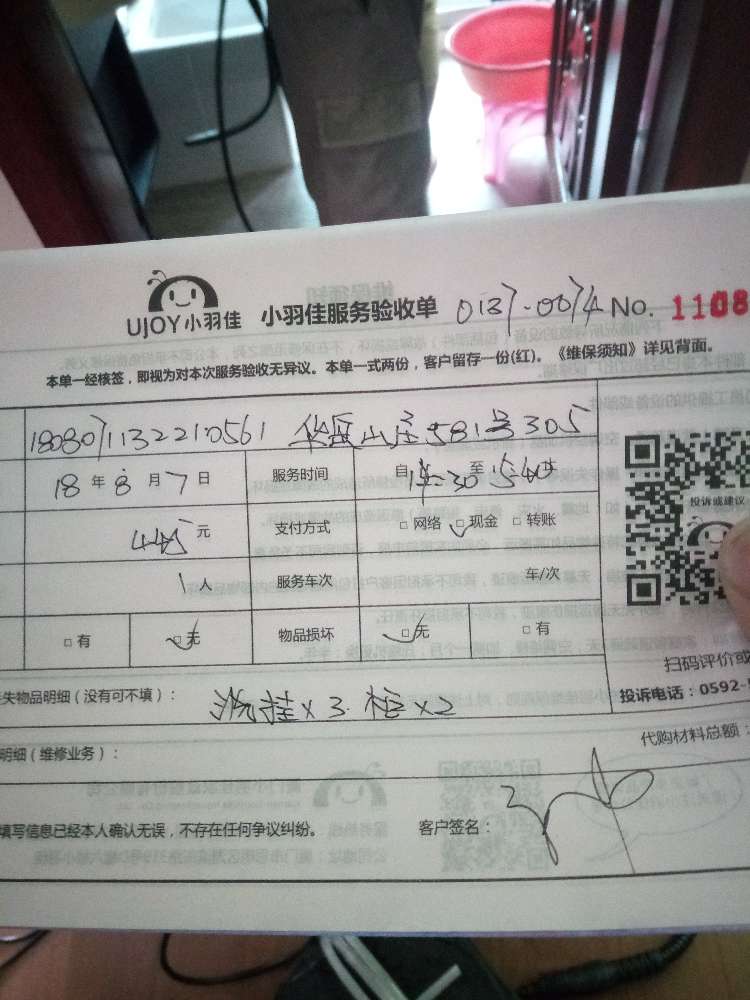 UJOY小羽佳 小羽佳服务验收单 0137-0074 No. 1108
本单一经核签，即视为对本次服务验收无异议。本单一式两份，客户留存一份(红)。《维保须知》详见背面。
1808071132210561 华 山庄581号305
18年8月7日 服务时间 自 :30 至15:40
445元 支付方式 □网络 □现金 □转账
投诉或建议
1人 服务车次 车/次
□有 □无 物品损坏 □无 □有
扫码评价或
失物品明细（没有可不填）： 洗挂×3. 柜×2 投诉电话：0592-
明细（维修业务）： 代购材料总额：
填写信息已经本人确认无误，不存在任何争议纠纷。 客户签名：